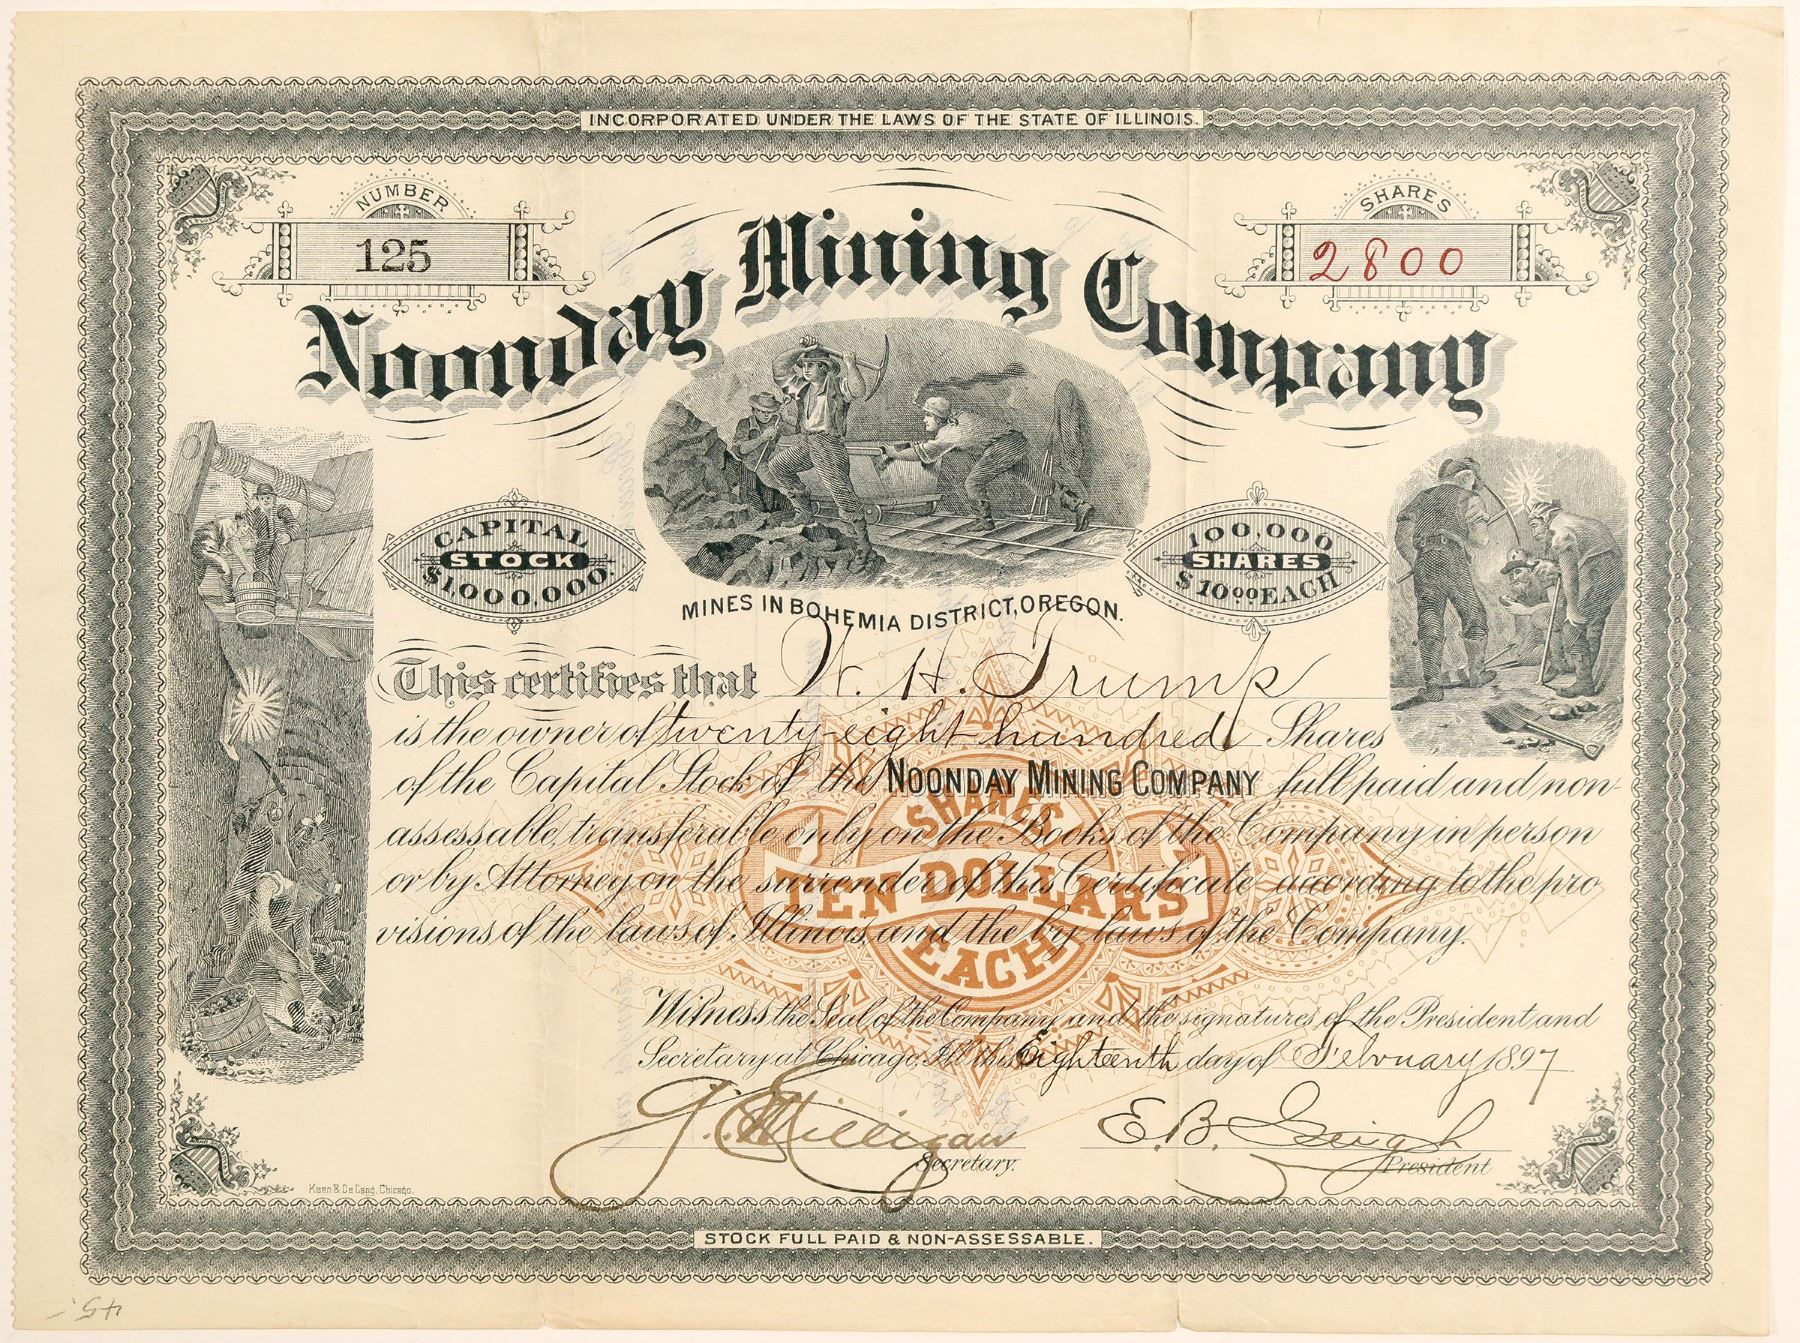 INCORPORATED UNDER THE LAWS OF THE STATE OF ILLINOIS.
NUMBER
125
SHARES
2800
Noonday Mining Company
CAPITAL
STOCK
$1,000,000.
100,000
SHARES
$10.00 EACH
MINES IN BOHEMIA DISTRICT, OREGON.
This certifies that W. H. Trump
is the owner of twenty-eight hundred Shares
of the Capital Stock of the NOONDAY MINING COMPANY full paid and non-
assessable, transferable only on the Books of the Company in person
or by Attorney on the surrender of this Certificate according to the pro
visions of the laws of Illinois, and the by laws of the Company.
SHARES
TEN DOLLARS
EACH
Witness the Seal of the Company and the signatures of the President and
Secretary at Chicago, Ill. this Eighteenth day of February 1897
J. C. Milligan
Secretary.
E. B.
President
Kean & De Lang, Chicago.
STOCK FULL PAID & NON-ASSESSABLE.